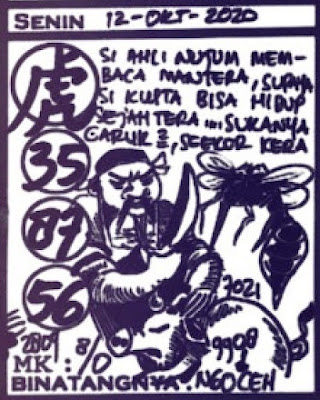 SENIN 12-OKT-2020
SI AHLI NUJUM MEM-
BACA MANTERA, SUPAYA
SI KUSTA BISA HIDUP
SEJAHTERA .... SUKANYA
GARUK 2, SEEKOR KERA
虎
35
87
56
7021
2801
9998
MK : 8/0
BINATANGNYA : NGOCEH